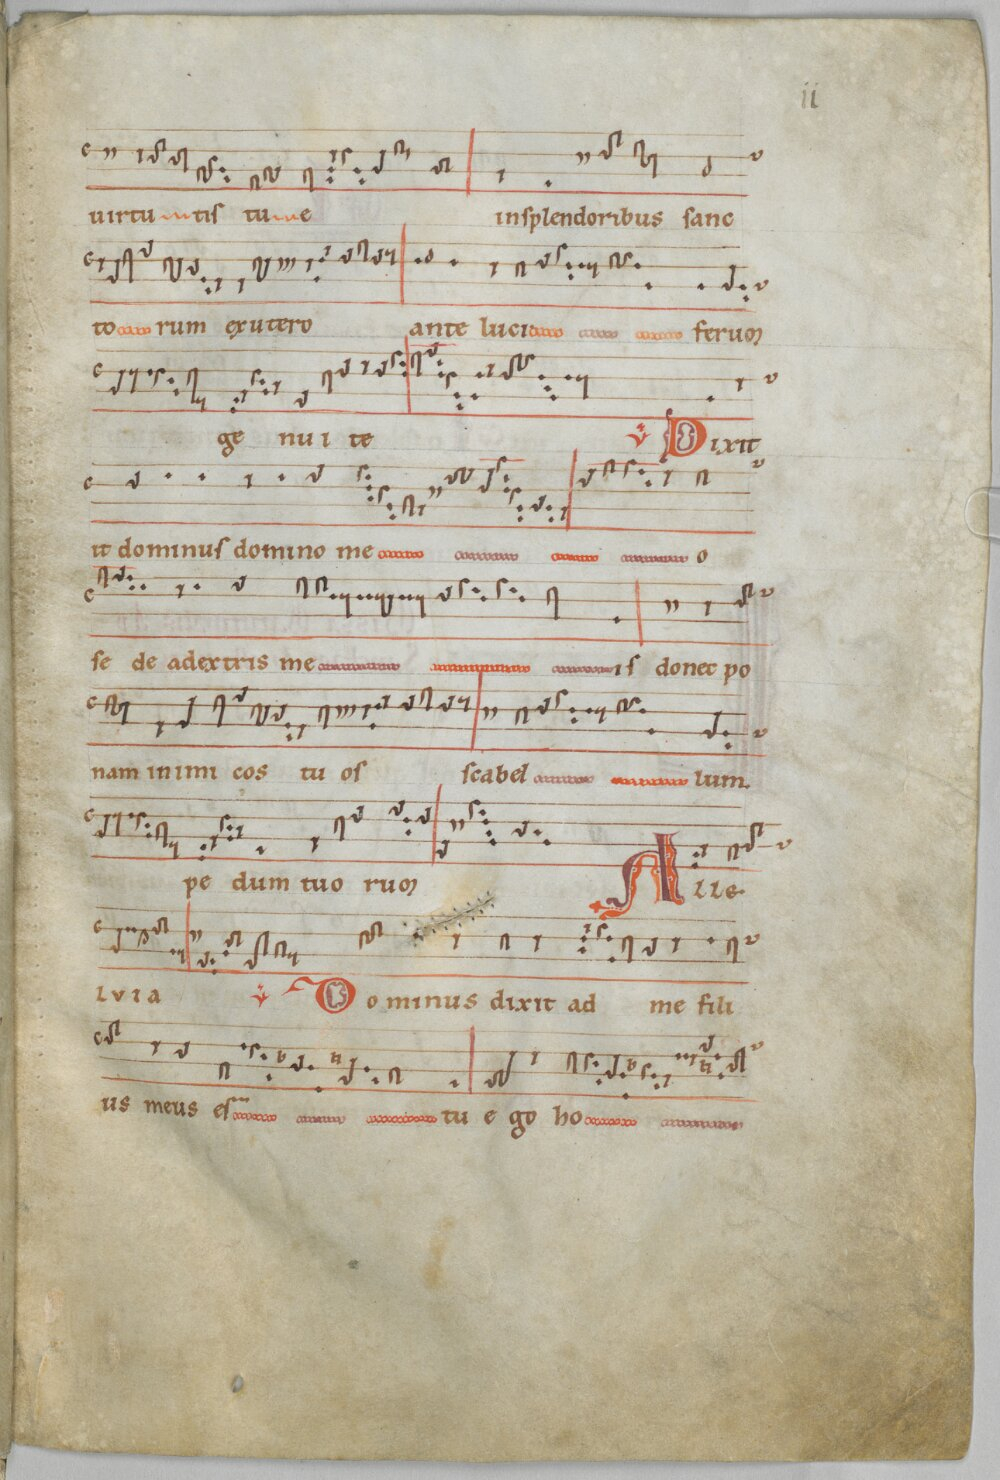 ii
uirtu tis tu e insplendoribus sanc
to rum exutero ante luci ferum
ge nu i te ℣ Dixit
it dominus domino me o
se de adextris me is donec po
nam inimi cos tu os scabel lum
pe dum tuo rum Alle
luia ℣ Dominus dixit ad me fili
us meus es tu e go ho